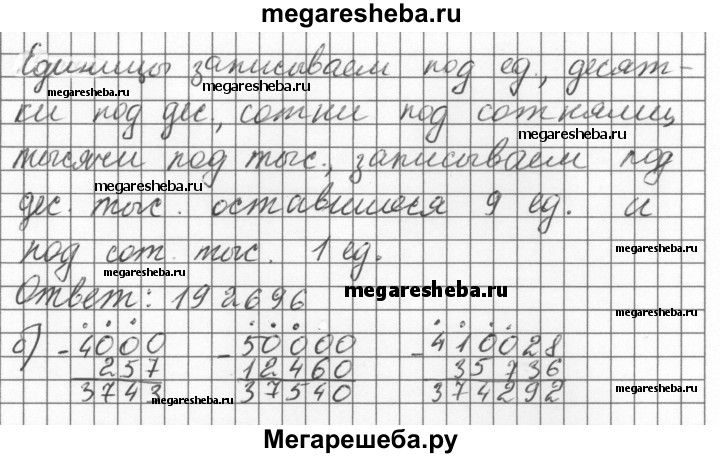 megaresheba.ru
Единицы записываем под ед., десят-
megaresheba.ru megaresheba.ru
ки под дес., сотни под сотнями,
megaresheba.ru
тысячи под тыс., записываем под
megaresheba.ru
дес. тыс. оставшиеся 9 ед. и
под сот. тыс. 1 ед.
megaresheba.ru
megaresheba.ru
Ответ: 192696
megaresheba.ru
б) -4000 -50000 -410028
257 12460 35736
3743 37540 374292
megaresheba.ru megaresheba.ru megaresheba.ru
Мегарешеба.ру